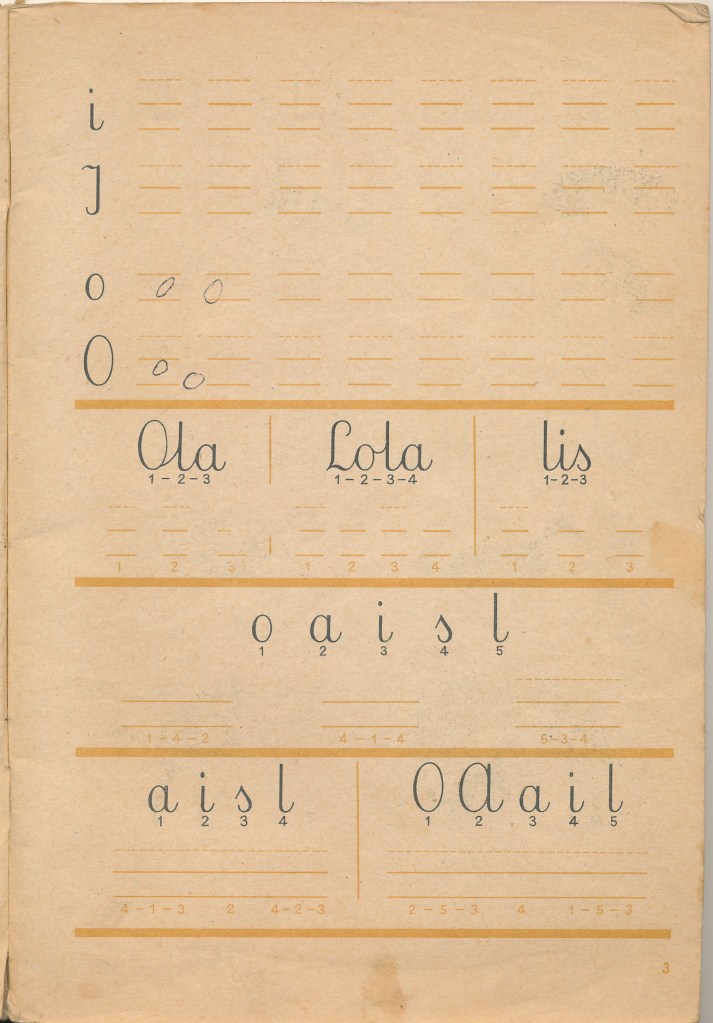 i
J
o o o
O o o
Ola Lola lis
1-2-3 1-2-3-4 1-2-3
1 2 3 1 2 3 4 1 2 3
o a i s l
1 2 3 4 5
1-4-2 4-1-4 5-3-4
a i s l O A a i l
1 2 3 4 1 2 3 4 5
4-1-3 2 4-2-3 2-5-3 4 1-5-3
3